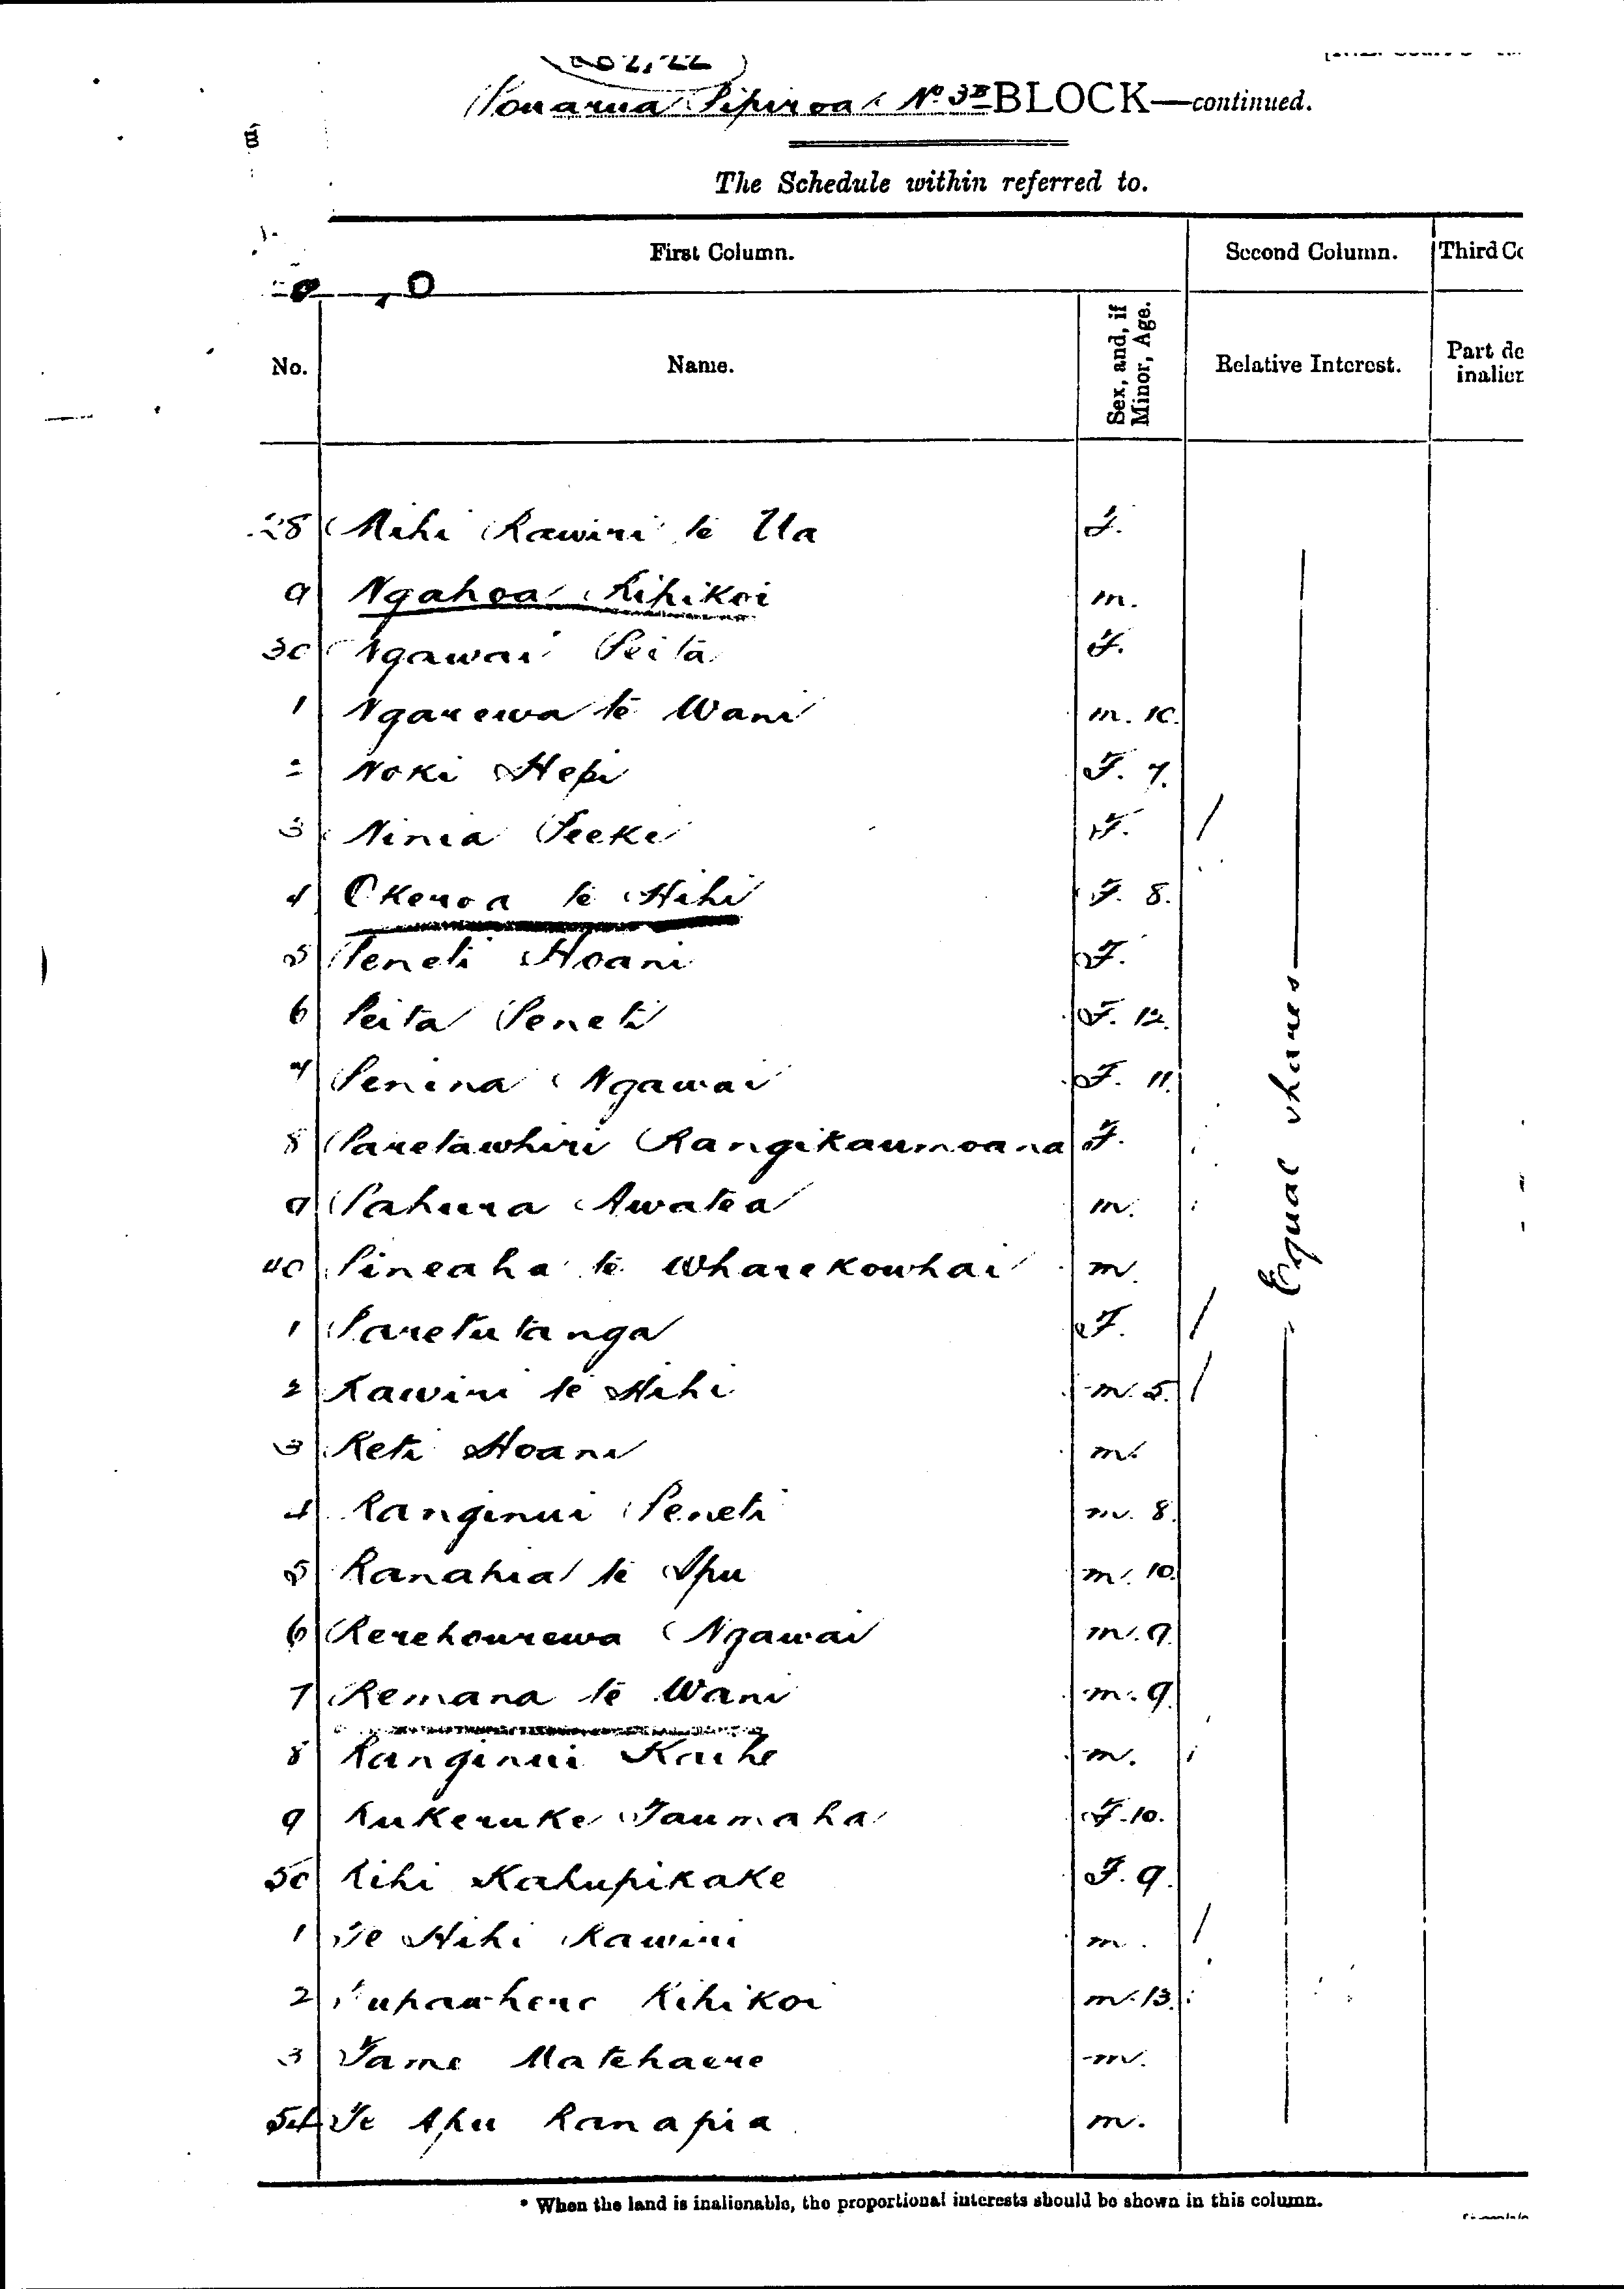 Pouarua Pipiroa No 3B BLOCK—continued.
The Schedule within referred to.
First Column. Second Column. Third Co
No. Name. Sex, and, if Minor, Age. Relative Interest. Part de inalien
28 Mihi Rawiri te Ua F.
9 Ngahoa Rihikoi m.
30 Ngawai Peita F.
1 Ngarewa te Wani m. 10.
2 Noki Hepi F. 7.
3 Ninia Peeke F. /
4 Okeroa te Hihi F. 8.
5 Peneti Hoani F.
6 Peita Peneti F. 12.
7 Penina Ngawai F. 11.
8 Paretawhiri Rangikaumoana F.
9 Pahura Awatea m.
40 Pineaha te Wharekowhai m.
1 Paretutanga F. /
2 Rawiri te Hihi m. 5. /
3 Reti Hoani m.
4 Ranginui Peneti m. 8.
5 Ranapia te Apu m. 10.
6 Rerehourewa Ngawai m. 9.
7 Remana te Wani m. 9.
8 Ranginui Kaihe m.
9 Rukeruke Taumaha F. 10.
50 Rihi Kahupikake F. 9.
1 Te Hihi Rawiri m. /
2 Rihikoi m. 13.
3 Tame Matehaere m.
54 Te Apu Ranapia m.
Equal shares
* When the land is inalienable, the proportional interests should be shown in this column.